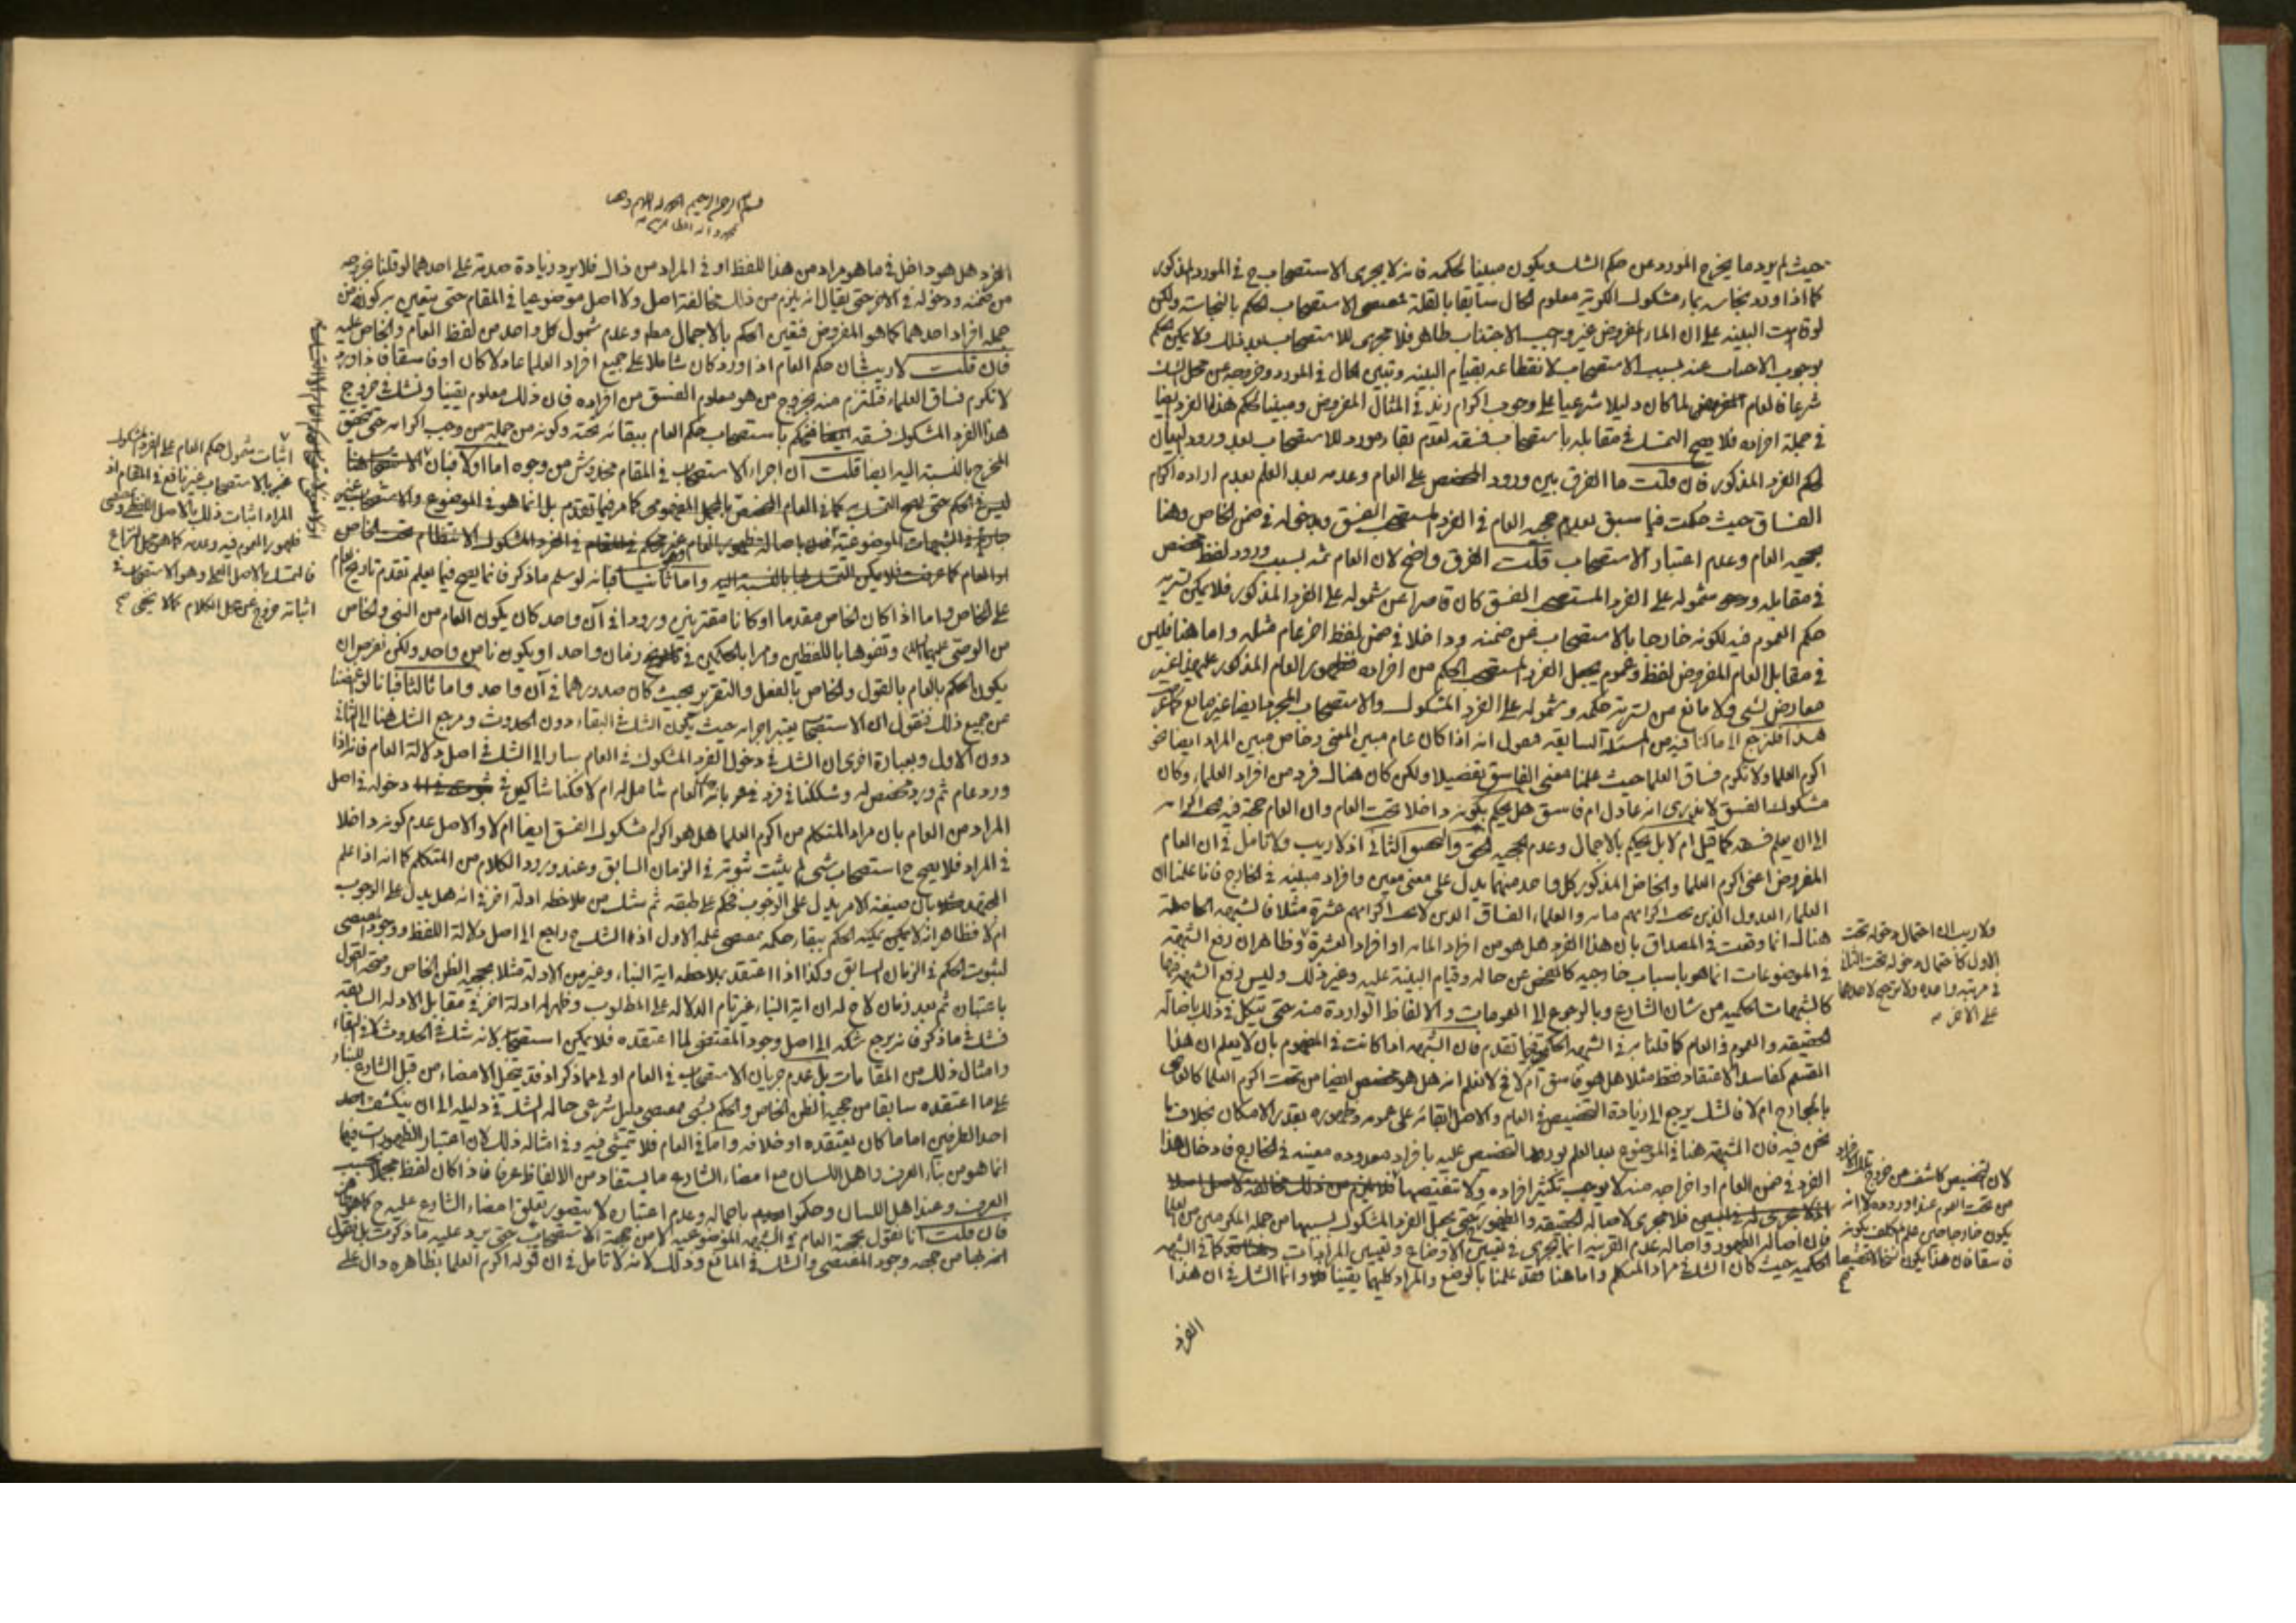 حيث لم يرد ما يخرج المورد عن حكم الشك ويكون مبينا لحكمه فانه لا يجرى الاستصحاب ح في المورد المذكور
كما اذا ورد نجاسة بماء مشكوك الكرية معلوم الحال سابقا بالقلة الاستصحاب الحكم بالنجاسة ولكن
لو قامت البينة على ان الماء المفروض غير وجب الاجتناب طاهر فلا مجرى للاستصحاب بعد ذلك ولا يمكن الحكم
بوجوب عنه بسبب الاستصحاب لانقطاعه بقيام البينة وتبين الحال في المورد وخروجه عن محل الشك
شرعا فالعام لما كان دليلا شرعيا على وجوب اكرام زيد في المثال المفروض ومبينا لحكم هذا الفرد ايضا
في جملة افراده فلا يصح التمسك في مقابله باستصحاب فسقه لعدم بقاء مورد للاستصحاب بعد ورود البيان
لحكم الفرد المذكور فان قلت ما الفرق بين ورود المخصص على العام وعدمه بعد العلم بعدم ارادة اكرام
الفساق حيث حكمت فيما سبق بعدم حجية العام في الفرد المستصحب الفسق وبدخوله في ضمن الخاص وهنا
بحجية العام وعدم اعتبار الاستصحاب قلت الفرق واضح لان العام ثمه بسبب ورود لفظ مخصص
في مقابله وعدم شموله على الفرد المستصحب الفسق كان قاصرا عن شموله على الفرد المذكور فلا يمكن تسرية
حكم العموم فيه لكونه خارجا بالاستصحاب عن ضمنه وداخلا في ضمن لفظ اخر عام مثله واما هنا فليس
في مقابل العام المفروض لفظ وعموم يجعل الفرد المستصحب الحكم من افراده فظهور العام المذكور عليه غير
معارض لشئ ولا مانع من تسرية حكمه وشموله على الفرد المشكوك والاستصحاب المجرد ايضا غير مانع كما عرفت
هذا فلنرجع الى ما كنا فيه من المسئلة السابقة فنقول انه اذا كان عام مبين المعنى وخاص مبين المراد ايضا نحو
اكرم العلما ولا تكرم فساق العلما حيث علمنا معنى الفاسق تفصيلا ولكن كان هناك فرد من افراد العلماء وكان
مشكوك الفسق لا ندرى انه عادل ام فاسق هل يحكم بكونه داخلا تحت العام وان العام حجة فيه اكرامه
الى ان يعلم فسقه كما قيل ام لا بل يحكم بالاجمال وعدم الحجية الحق والتحقيق الثانى اذ لا ريب ولا تامل في ان العام
المفروض اعنى اكرم العلما والخاص المذكور كل واحد منهما يدل على معنى معين وافراد مبينة في الخارج فانا علمنا ان
العلماء العدول الذين يجب اكرامهم مائة والعلماء الفساق الذين لا يجب اكرامهم عشرة مثلا فالشبهة الحاصلة
هناك انما وقعت في المصداق بان هذا الفرد هل هو من افراد المائة او افراد العشرة وظاهر ان رفع الشبهة
في الموضوعات انما هو باسباب خارجية كالفحص عن حاله وقيام البينة عليه وغير ذلك وليس رفع الشبهة فيها
كالشبهات الحكمية من شان الشارع وبالرجوع الى العمومات والالفاظ الواردة منه حتى يتكل في ذلك باصالة
الحقيقة والعموم في العام كما قلنا به في الشبهة الحكمية فيما تقدم فان الشبهة اذا كانت في المفهوم بان لا يعلم ان هذا
القسم كفاسد الاعتقاد فقط مثلا هل هو فاسق ام لا فح لا نعلم انه هل هو مخصص ايضا من تحت اكرم العلما كالعاصى
بالجوارح ام لا فالشك يرجع الى زيادة التخصيص في العام والاصل ابقائه على عمومه وظهوره بقدر الامكان بخلاف ما
نحن فيه فان الشبهة هنا في الموضوع بعد العلم بورود التخصيص عليه بافراد معدودة معينة في الخارج فادخال هذا
الفرد في ضمن العام او اخراجه منه لا يوجب تكثير افراده ولا تنقيصها
فلا مجرى لاصالة الحقيقة والظهور حتى يجعل الفرد المشكوك بسببها من جملة المكرمين من العلما
فان اصالة الظهور واصالة عدم القرينة انما تجرى في تعيين الاوضاع وتعيين المرادات كما في الشبهة
الحكمية حيث كان الشك في مراد المتكلم واما هنا فقد علمنا بالوضع والمراد كليهما يقينا وانما الشك في ان هذا
ولا ريب ان احتمال دخوله تحت
الاول كاحتمال دخوله تحت الثانى
في مرتبة واحدة ولا ترجيح لاحدهما
على الاخر منه
لان التخصيص كاشف عن خروج تلك الافراد
من تحت العموم عند وروده لا انه
يكون خارجا حين علم المكلف بكونه
فاسقا فان هذا يكون نسخا لا تخصيصا
الفرد
بسم الله الرحمن الرحيم
الفرد هل هو داخل في ما هو مراد من هذا اللفظ او في المراد من ذاك فلا يرد زيادة صدمة على احدهما لو قلنا بخروجه
من ضمنه ودخوله في الاخر حتى يقال انه يلزم من ذلك مخالفة اصل ولا اصل موضوعيا في المقام حتى يتعين به كونه من
جملة افراد احدهما كما هو المفروض فتعين الحكم بالاجمال وعدم شمول كل واحد من لفظ العام والخاص عليه
فان قلت لا ريب ان حكم العام اذا ورد كان شاملا على جميع افراد العلما عادلا كان او فاسقا فاذا ورد
لا تكرم فساق العلماء فنلتزم منه بخروج من هو معلوم الفسق من افراده فان ذلك معلوم يقينا ونشك في خروج
هذا الفرد المشكوك فسقه فنحكم باستصحاب حكم العام ببقائه تحته وكونه من جملة من وجب اكرامه حتى يتحقق
المخرج بالنسبة اليه ايضا قلت ان اجراء الاستصحاب في المقام مخدوش من وجوه اما اولا فبان الاستصحاب هنا
ليس في الحكم حتى يصح التمسك به كما في العام المخصص بالمجمل المفهومى كما مر فيما تقدم بل انما هو في الموضوع والاستصحاب غير
او العام كما عرفت فلا يمكن التمسك بها بالنسبة اليه واما ثانيا فبانه لو سلم ما ذكر فانما يصح فيما يعلم تقدم تاريخ العام
على الخاص واما اذا كان الخاص مقدما او كانا مقترنين ورودا في آن واحد كان يكون العام من النبى والخاص
من الوصى عليهما السلام وتفوها باللفظين وامرا بالحكمين في زمان واحد او يكون ناص واحد ولكن نفرض ان
يكون الحكم بالعام بالقول والخاص بالفعل والتقرير بحيث كان صدورهما في آن واحد واما ثالثا فبانا لو اغمضنا
عن جميع ذلك فنقول ان الاستصحاب يعتبر اجرائه حيث يكون الشك في البقاء دون الحدوث ومرجع الشك هنا الى الثانى
دون الاول وبعبارة اخرى ان الشك في دخول الفرد المشكوك في العام سار الى الشك في اصل دلالة العام فانه اذا
ورد عام ثم ورد مخصص له وشككنا في فرد بان العام شامل له ام لا فكنا شاكين في دخوله في اصل
المراد من العام بان مراد المتكلم من اكرم العلما هل هو اكرام مشكوك الفسق ايضا ام لا والاصل عدم كونه داخلا
في المراد فلا يصح ح استصحاب شئ لم يثبت ثبوته في الزمان السابق وعند ورود الكلام من المتكلم كما انه اذا علم
المجتهد بان صيغة الامر يدل على الوجوب فحكم على طبقه ثم شك من ملاحظة ادلة اخر في انه هل يدل على الوجوب
ام لا فظاهر انه لا يمكن الحكم ببقاء حكمه بمقتضى علمه الاول اذ الشك ح راجع الى اصل دلالة اللفظ ووجود المقتضى
لثبوت الحكم في الزمان السابق وكذا اذا اعتقد بملاحظة اية النباء وغير من الادلة مثلا بحجية الظن الخاص
باعتبار ثم بعد زمان لاح له ان اية النباء غير تام الدلالة على المطلوب وظهر له ادلة اخر في مقابل الادلة السابقة
فشك في ما ذكر فانه يرجع شكه الى اصل وجود المقتضى لما اعتقده فلا يمكن استصحابه لانه شك في الحدوث لا في البقاء
وامثال ذلك من المقامات بل عدم جريان الاستصحاب في العام اولى مما ذكر اذ قد يتخيل الامضاء من قبل الشارع للبناء
على ما اعتقده سابقا من حجية الظن الخاص والحكم بشئ بمقتضى دليل شرعى حالة الشك في دليله الى ان ينكشف احد
احد الطرفين اما ما كان يعتقده او خلافه واما في العام فلا يتمشى فيه وفي امثاله ذلك لان اعتبار الظهورات فيها
انما هو من بناء العرف واهل اللسان مع امضاء الشارع ما يستفاد من الالفاظ عرفا فاذا كان لفظ مجملا بحسب
العرف وعند اهل اللسان وحكموا باجماله وعدم اعتباره لا يتصور تعلق امضاء الشارع عليه ح
فان قلت انا نقول بحجية العام في الشبهة الموضوعية لا من جهة الاستصحاب حتى يرد عليه ما ذكرت بل نقول
انه حجة من جهة وجود المقتضى والشك في المانع وذلك لانه لا تامل في ان قوله اكرم العلما بظاهره دال على
اثبات شمول حكم العام على الفرد المشكوك
بالاستصحاب غير نافع في المقام اذ
المراد اثبات ذلك بالاصل اللفظى
ظهور العموم فيه وعدمه كما هو محل النزاع
فالتمسك بالاصل العملى وهو الاستصحاب في
اثباته خروج عن محل الكلام كما لا يخفى